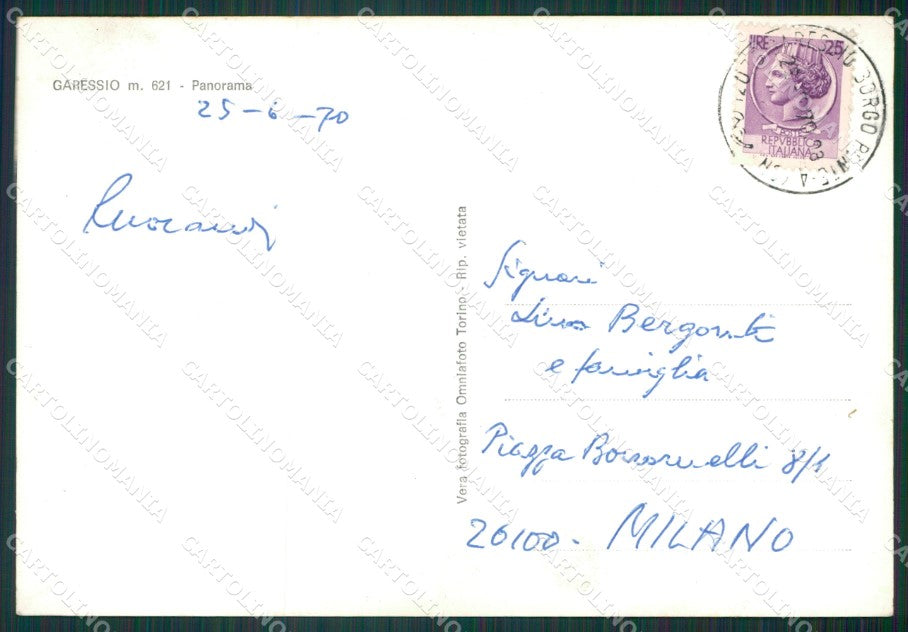 GARESSIO m. 621 - Panorama
25-6-70
Vera fotografia Omniafoto Torino - Rip. vietata
LIRE 25
POSTE
REPVBBLICA
ITALIANA
Signori
Bergonti
e famiglia
Piazza 8/1
20100 - MILANO
CARTOLINOMANIA